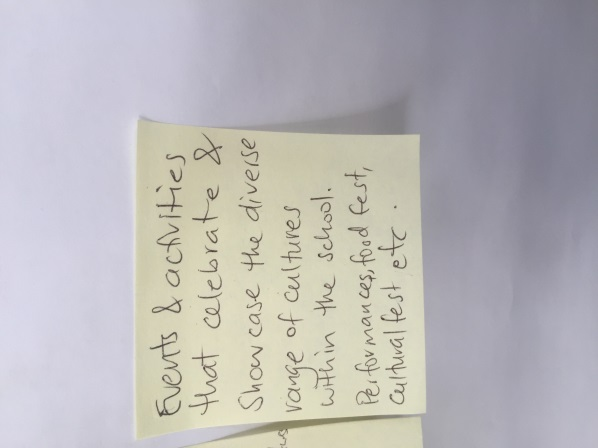 Events & activities
that celebrate &
Showcase the diverse
range of cultures
within the school.
Performances, food fest,
Cultural fest etc.